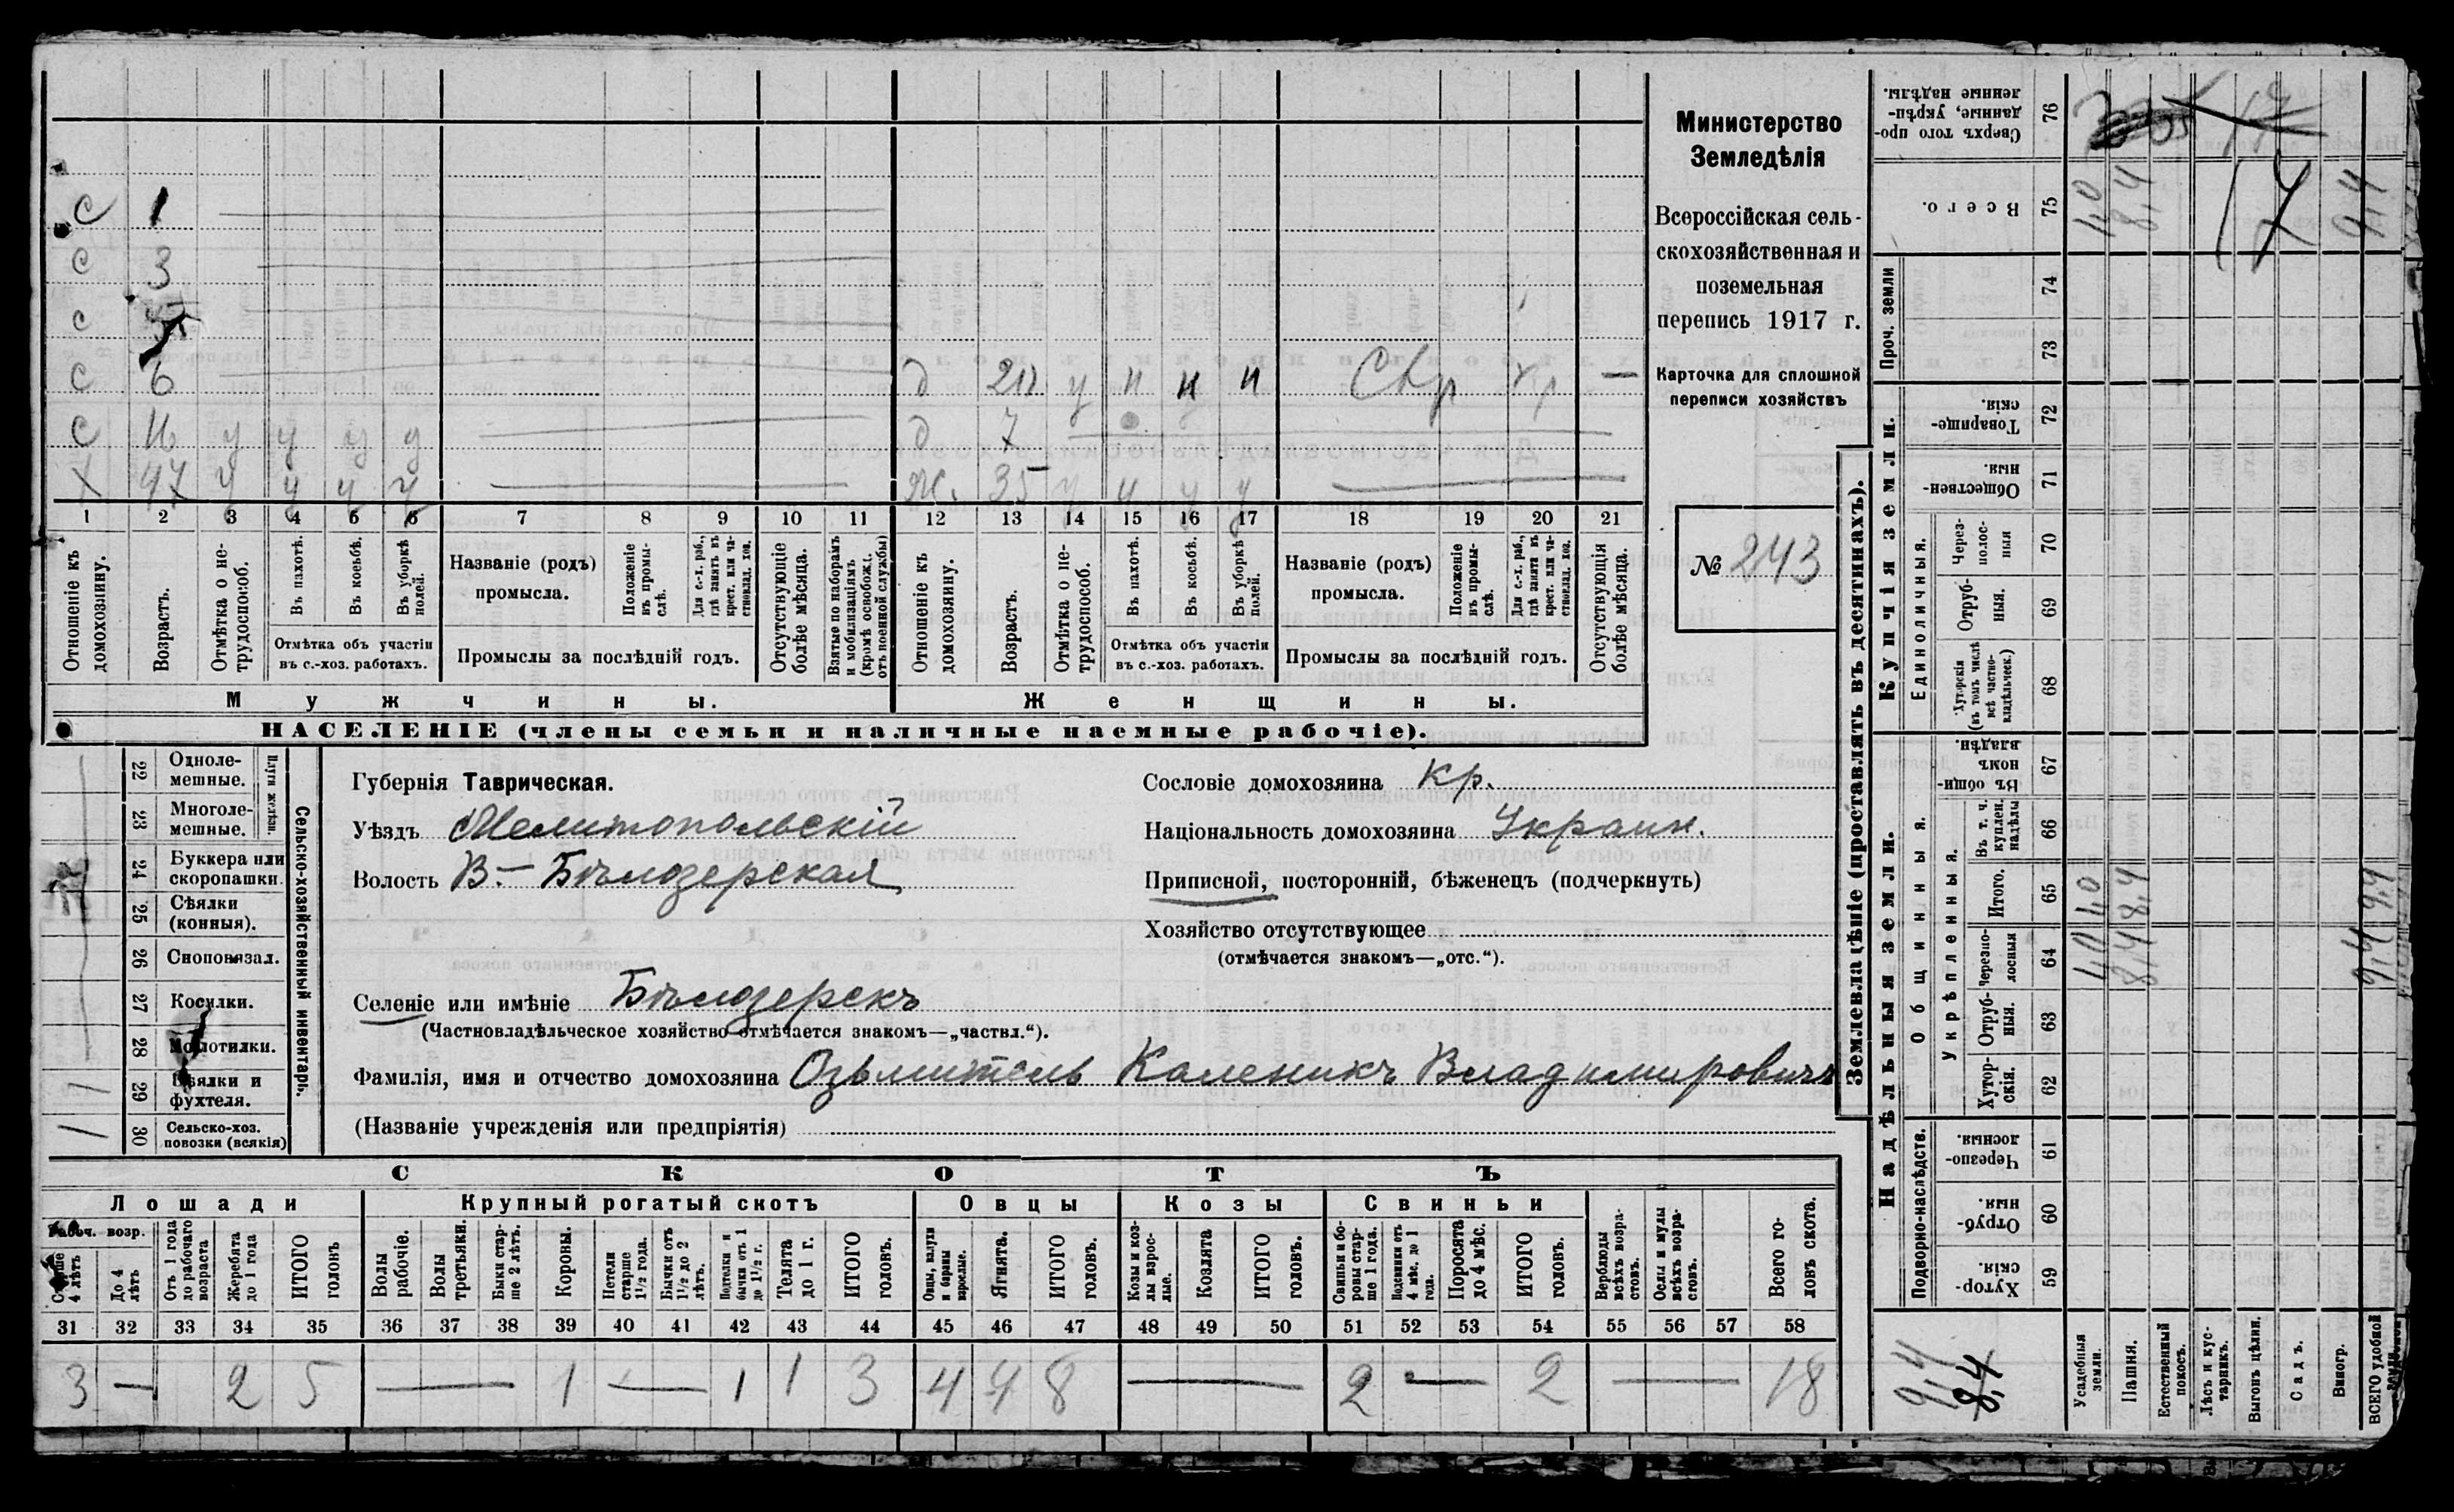 Министерство
Земледѣлія
Всероссійская сель-
скохозяйственная и
поземельная
перепись 1917 г.
Карточка для сплошной
переписи хозяйствъ
№ 243
с 1
с 3
с
с 6 д у н н н Свр —
с у у у у д 7
х 47 у у у у Ж. 35 у у у у
1 2 3 4 5 6 7 8 9 10 11 12 13 14 15 16 17 18 19 20 21
Отношеніе къ домохозяину.
Возрастъ.
Отмѣтка о не-трудоспособ.
Въ пахотѣ.
Въ косьбѣ.
Въ уборкѣ полей.
Отмѣтка объ участіи въ с.-хоз. работахъ.
Названіе (родъ) промысла.
Положеніе въ промы-слѣ.
Для с.-х. раб., гдѣ занятъ въ крест. или ча-стновлад. хоз.
Промыслы за послѣдній годъ.
Отсутствующіе болѣе мѣсяца.
Взятые по наборамъ и мобилизаціямъ (кромѣ освобожд. отъ военной службы)
Отношеніе къ домохозяину.
Возрастъ.
Отмѣтка о не-трудоспособ.
Въ пахотѣ.
Въ косьбѣ.
Въ уборкѣ полей.
Отмѣтка объ участіи въ с.-хоз. работахъ.
Названіе (родъ) промысла.
Положеніе въ промы-слѣ.
Для с.-х. раб., гдѣ занята въ крест. или ча-стновлад. хоз.
Промыслы за послѣдній годъ.
Отсутствующія болѣе мѣсяца.
Мужчины. Женщины.
НАСЕЛЕНІЕ (члены семьи и наличные наемные рабочіе).
Сельско-хозяйственный инвентарь.
Плуги желѣзн.
22 Одноле-мешные.
23 Многоле-мешные.
24 Буккера или скоропашки.
25 Сѣялки (конныя).
26 Сноповязал.
27 Косилки.
28 Молотилки.
29 Вѣялки и фухтеля. 1
30 Сельско-хоз. повозки (всякія) 1
Губернія Таврическая.
Уѣздъ Мелитопольскій
Волость В.- Бѣлозерская
Сословіе домохозяина кр.
Національность домохозяина Украин.
Приписной, посторонній, бѣженецъ (подчеркнуть)
Хозяйство отсутствующее
(отмѣчается знакомъ—„отс.“).
Селеніе или имѣніе Бѣлозерскъ
(Частновладѣльческое хозяйство отмѣчается знакомъ—„частвл.“).
Фамилія, имя и отчество домохозяина Каленикъ Владимировичъ
(Названіе учрежденія или предпріятія)
СКОТЪ
Лошади Крупный рогатый скотъ Овцы Козы Свиньи
Рабоч. возр.
Старше 4 лѣтъ
До 4 лѣтъ
Отъ 1 года до рабочаго возраста
Жеребята до 1 года
ИТОГО головъ
Волы рабочіе.
Волы третьяки.
Быки стар-ше 2 лѣтъ.
Коровы.
Нетели старше 1½ года.
Бычки отъ 1½ до 2 лѣтъ.
Нетелки и бычки отъ 1 до 1½ г.
Телята до 1 г.
ИТОГО головъ.
Овцы, валухи и бараны взрослые.
Ягнята.
ИТОГО головъ.
Козы и коз-лы взрос-лые.
Козлята
ИТОГО головъ.
Свиньи и бо-ровы стар-ше 1 года.
Подсвинки отъ 4 мѣс. до 1 года.
Поросята до 4 мѣс.
ИТОГО головъ.
Верблюды всѣхъ возра-стовъ.
Ослы и мулы всѣхъ возра-стовъ.
Всего го-ловъ скота.
31 32 33 34 35 36 37 38 39 40 41 42 43 44 45 46 47 48 49 50 51 52 53 54 55 56 57 58
3 — 2 5 — 1 — 1 1 3 4 4 8 — 2 — 2 — 18
Землевладѣніе (проставлять въ десятинахъ).
Надѣльныя земли. Купчія земли. Проч. земли
Подворно-наслѣдств.
Общинныя.
Укрѣпленныя.
Единоличныя.
59 Хутор-скія.
60 Отруб-ныя.
61 Черезпо-лосныя.
62 Хутор-скія.
63 Отруб-ныя.
64 Черезпо-лосныя 1,0 8,4 9,4
65 Итого. 1,0 8,4 9,4
66 Въ т. ч. куплен. надѣлы
67 Въ общи-номъ владѣн.
68 Хуторскія (въ томъ числѣ всѣ частно-владѣльческ.)
69 Отруб-ныя.
70 Через-полос-ныя
71 Обществен-ныя.
72 Товарище-скія.
73
74
75 Всего. 1,0 8,4 9,4
76 Сверхъ того про-данные, укрѣп-ленные надѣлы.
9,4
8,4
Усадебныя земли.
Пашня.
Естественный покосъ.
Лѣсъ и кус-тарникъ.
Выгонъ цѣлин.
Садъ.
Виногр.
ВСЕГО удобной земли.